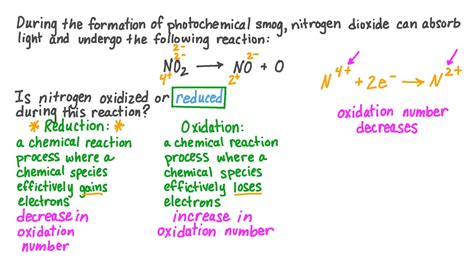 During the formation of photochemical smog, nitrogen dioxide can absorb
light and undergo the following reaction:
2-
2- 2-
NO₂ → NO + O
4+ 2+
N⁴⁺ + 2e⁻ → N²⁺
oxidation number
decreases
Is nitrogen oxidized or reduced
during this reaction?
* Reduction: *
a chemical reaction
process where a
chemical species
effictively gains
electrons
decrease in
oxidation
number
Oxidation:
a chemical reaction
process where a
chemical species
effictively loses
electrons
increase in
oxidation number